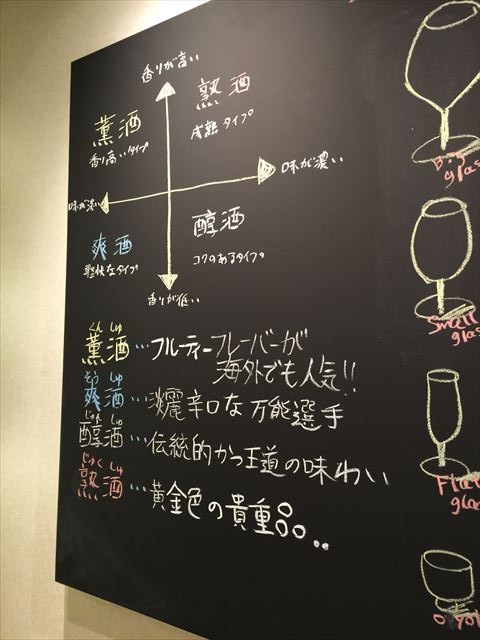 香りが高い
薫酒
香り高いタイプ
熟酒
成熟タイプ
味が濃い
爽酒
軽快なタイプ
醇酒
コクのあるタイプ
香りが低い
くん しゅ
薫酒…フルーティーフレーバーが
海外でも人気!!
そう しゅ
爽酒…淡麗辛口な万能選手
じゅん しゅ
醇酒…伝統的かつ王道の味わい
じゅく しゅ
熟酒…黄金色の貴重品。。
Big
glass
Small
glass
glass